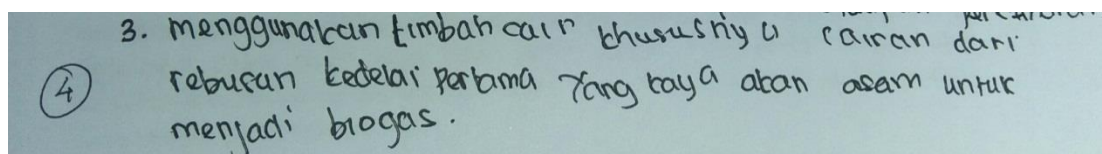 3. menggunakan limbah cair khususnya cairan dari
4 rebusan kedelai pertama yang kaya akan asam untuk
menjadi biogas.